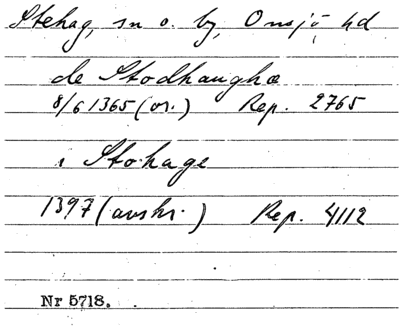 Stehag, sn o. by, Onsjö hd
de Stodhaughæ
8/6 1365 (or.) Rep. 2765
i Stohage
1397 (avskr.) Rep. 4112
Nr 5718.